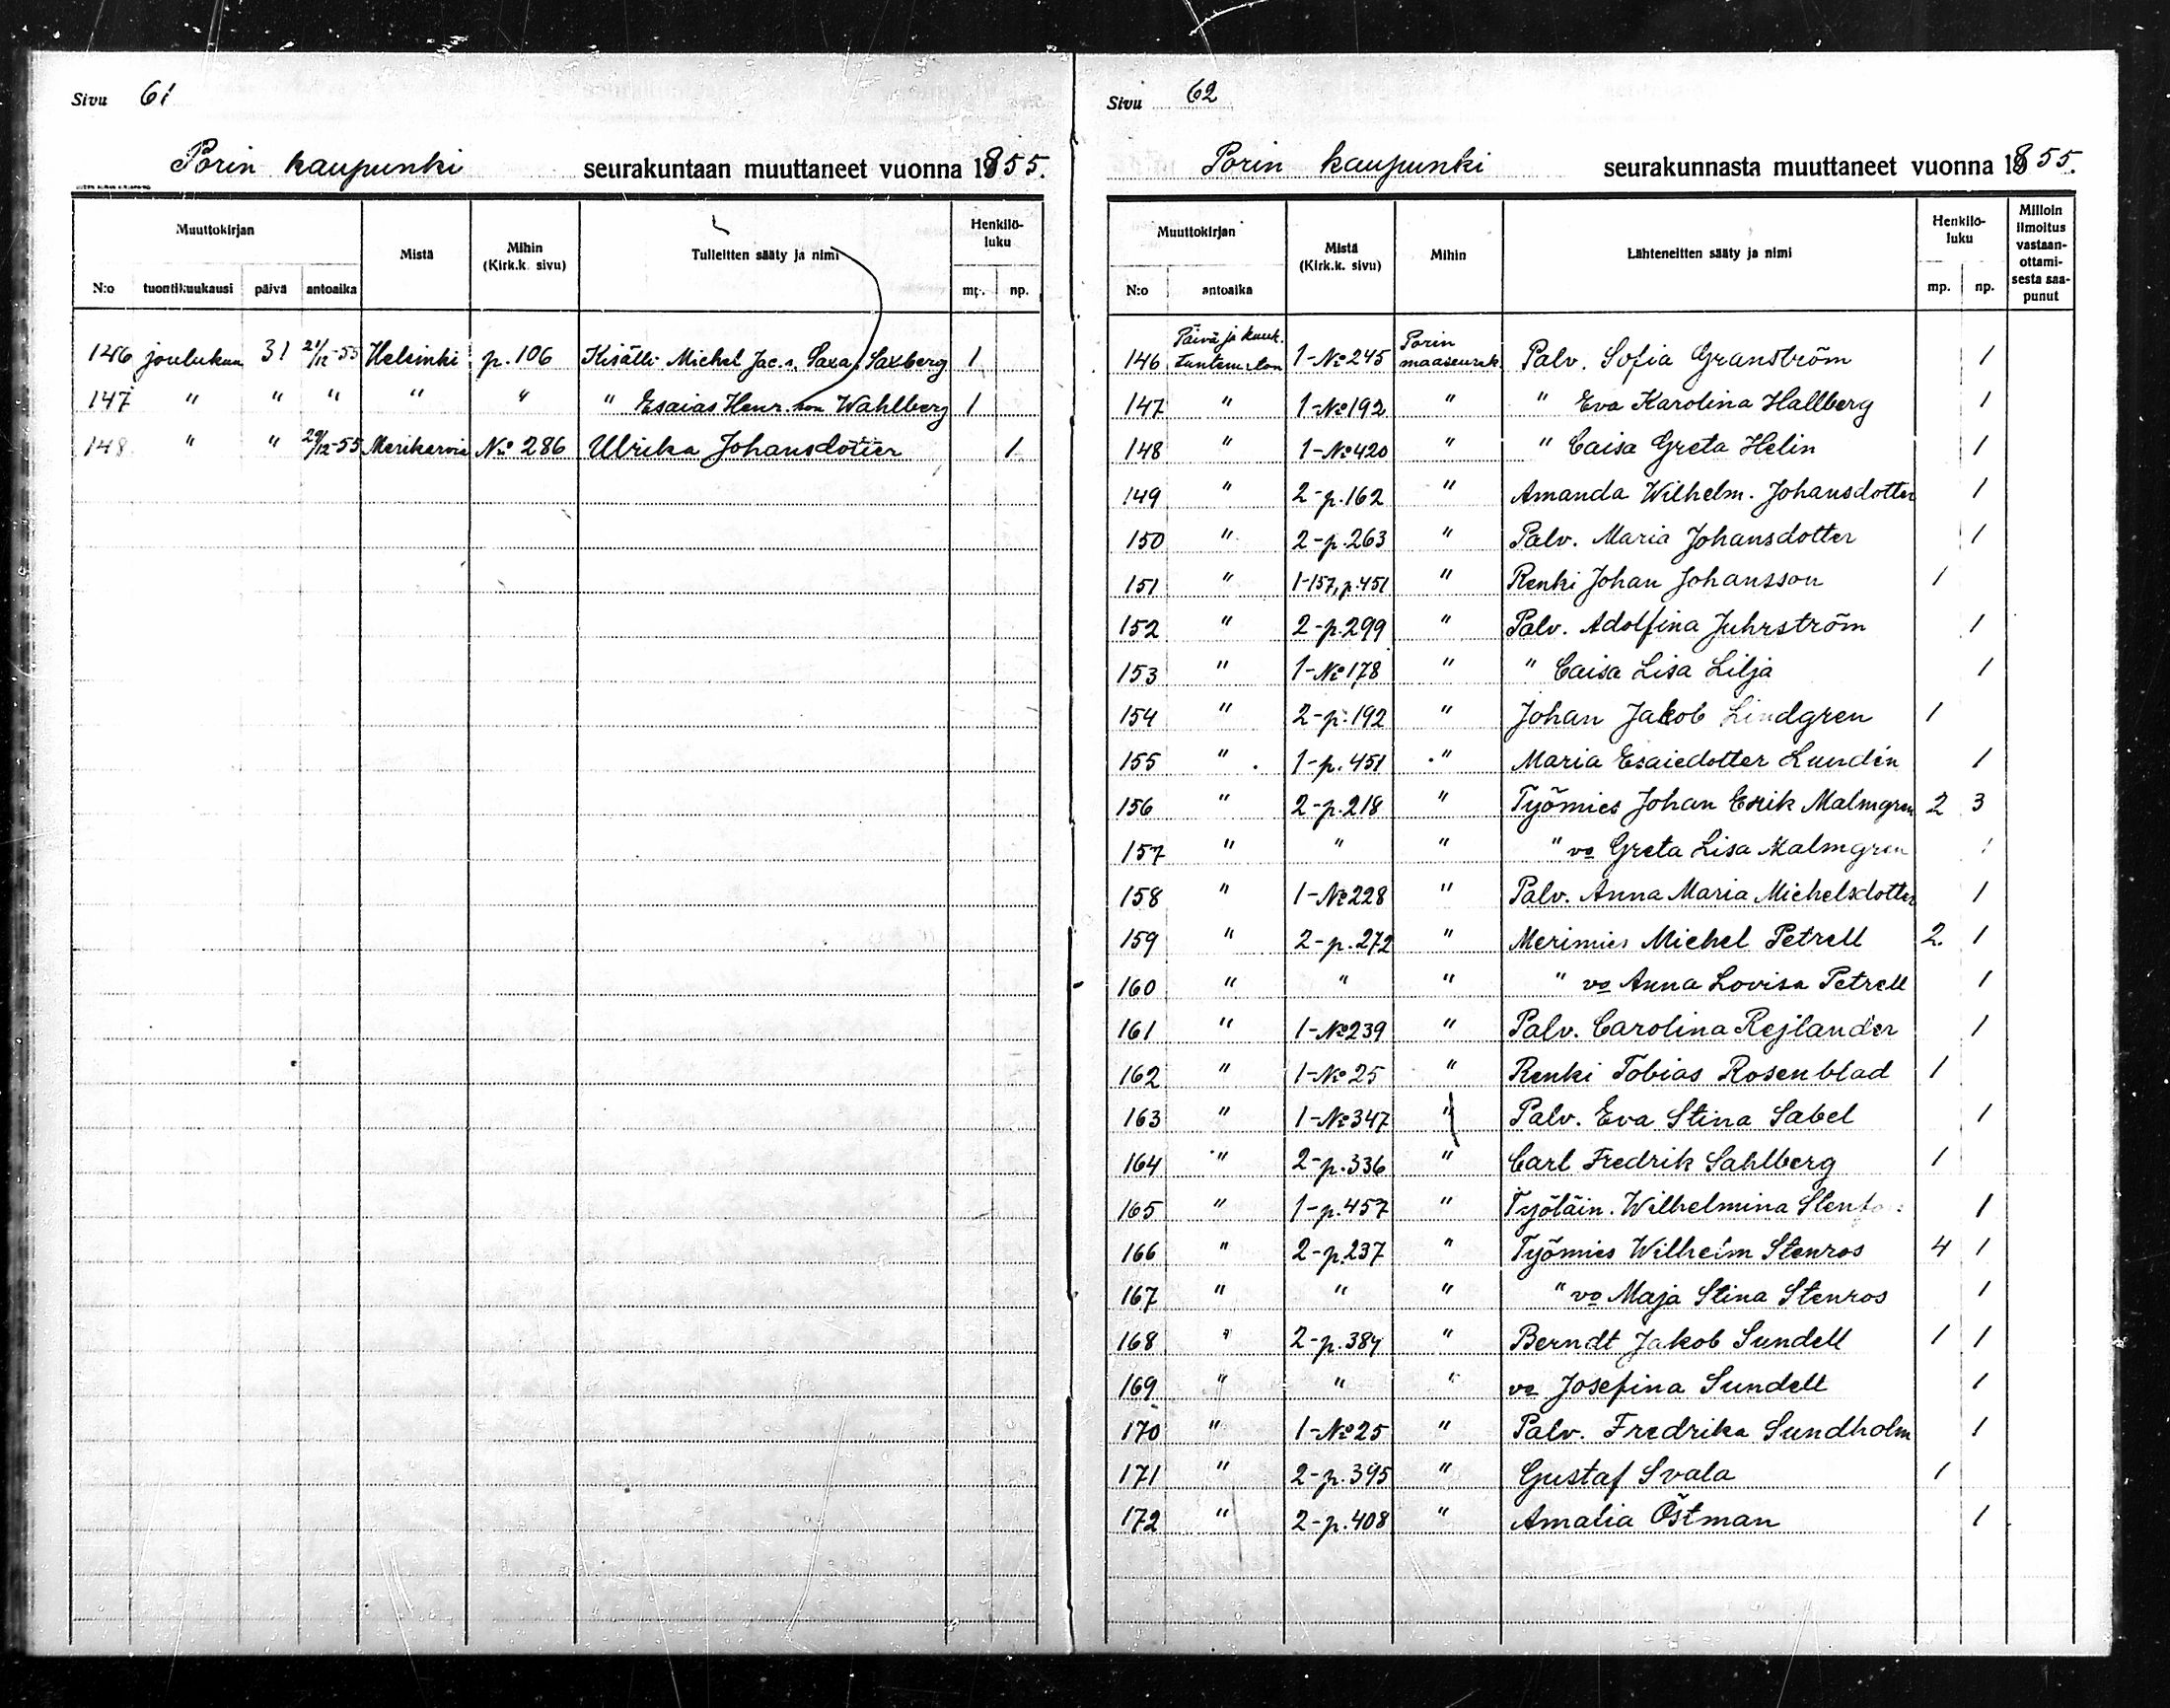 Sivu 61
Porin kaupunki seurakuntaan muuttaneet vuonna 1855.
Muuttokirjan Mistä Mihin (Kirk.k. sivu) Tulleitten sääty ja nimi Henkilö-luku
N:o tuontikuukausi päivä antoaika mp. np.
146 joulukuu 31 21/12-55 Helsinki p. 106 Kisälli Michel Jac.s. Saxa/Saxberg 1
147 " " " " " " Esaias Henr.son Wahlberg 1
148 " " 29/12-55 Merikarvia No 286 Ulrika Johansdotter 1
Sivu 62
Porin kaupunki seurakunnasta muuttaneet vuonna 1855.
Muuttokirjan Mistä (Kirk.k. sivu) Mihin Lähteneitten sääty ja nimi Henkilö-luku Milloin ilmoitus vastaan-ottami-sesta saa-punut
N:o antoaika mp. np.
146 Päivä ja kuuk. tuntematon 1-No 245 Porin maaseurak. Palv. Sofia Granström 1
147 " 1-No 192 " " Eva Karolina Hallberg 1
148 " 1-No 420 " " Caisa Greta Helin 1
149 " 2-p.162 " Amanda Wilhelm. Johansdotter 1
150 " 2-p.263 " Palv. Maria Johansdotter 1
151 " 1-157, p.451 " Renki Johan Johansson 1
152 " 2-p.299 " Palv. Adolfina Juhrström 1
153 " 1-No 178 " " Caisa Lisa Lilja 1
154 " 2-p.192 " Johan Jakob Lindgren 1
155 " 1-p.451 " Maria Esaiedotter Lundén 1
156 " 2-p.218 " Työmies Johan Erik Malmgren 2 3
157 " " " " vo Greta Lisa Malmgren 1
158 " 1-No 228 " Palv. Anna Maria Michelsdotter 1
159 " 2-p.272 " Merimies Michel Petrell 2 1
160 " " " " vo Anna Lovisa Petrell 1
161 " 1-No 239 " Palv. Carolina Rejlander 1
162 " 1-No 25 " Renki Tobias Rosenblad 1
163 " 1-No 347 " Palv. Eva Stina Sabel 1
164 " 2-p.336 " Carl Fredrik Sahlberg 1
165 " 1-p.457 " Työläin. Wilhelmina 1
166 " 2-p.237 " Työmies Wilhelm Stenros 4 1
167 " " " " vo Maja Stina Stenros 1
168 " 2-p.384 " Berndt Jakob Sundell 1 1
169 " " " vo Josefina Sundell 1
170 " 1-No 25 " Palv. Fredrika Sundholm 1
171 " 2-p.395 " Gustaf Svala 1
172 " 2-p.408 " Amalia Östman 1